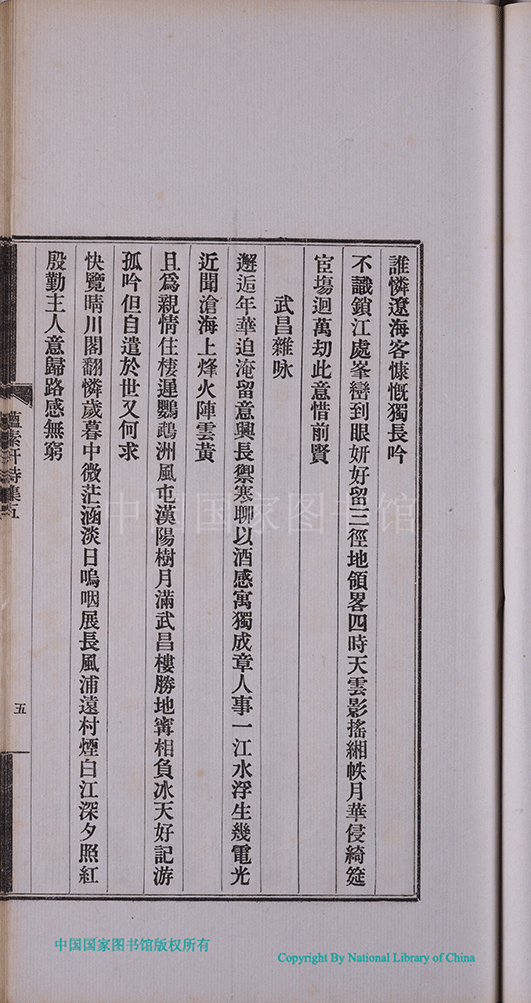 誰憐遼海客慷慨獨長吟
不識鎖江處峯巒到眼妍好留三徑地領畧四時天雲影搖緗帙月華侵綺筵
宦場迴萬劫此意惜前賢
武昌雜咏
邂逅年華迫淹留意興長禦寒聊以酒感寓獨成章人事一江水浮生幾電光
近聞滄海上烽火陣雲黃
且爲親情住棲遲鸚鵡洲風屯漢陽樹月滿武昌樓勝地寗相負冰天好記游
孤吟但自遣於世又何求
快覽晴川閣翻憐歲暮中微茫涵淡日嗚咽展長風浦遠村煙白江深夕照紅
殷勤主人意歸路感無窮
蘊素軒詩集五
五
中国国家图书馆
中国国家图书馆版权所有
Copyright By National Library of China